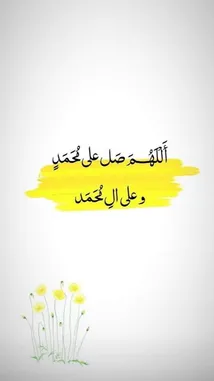 أَللّهُمَ صَل عَلی مُحَمَدٍ
و عَلی الِ مُحَمَد